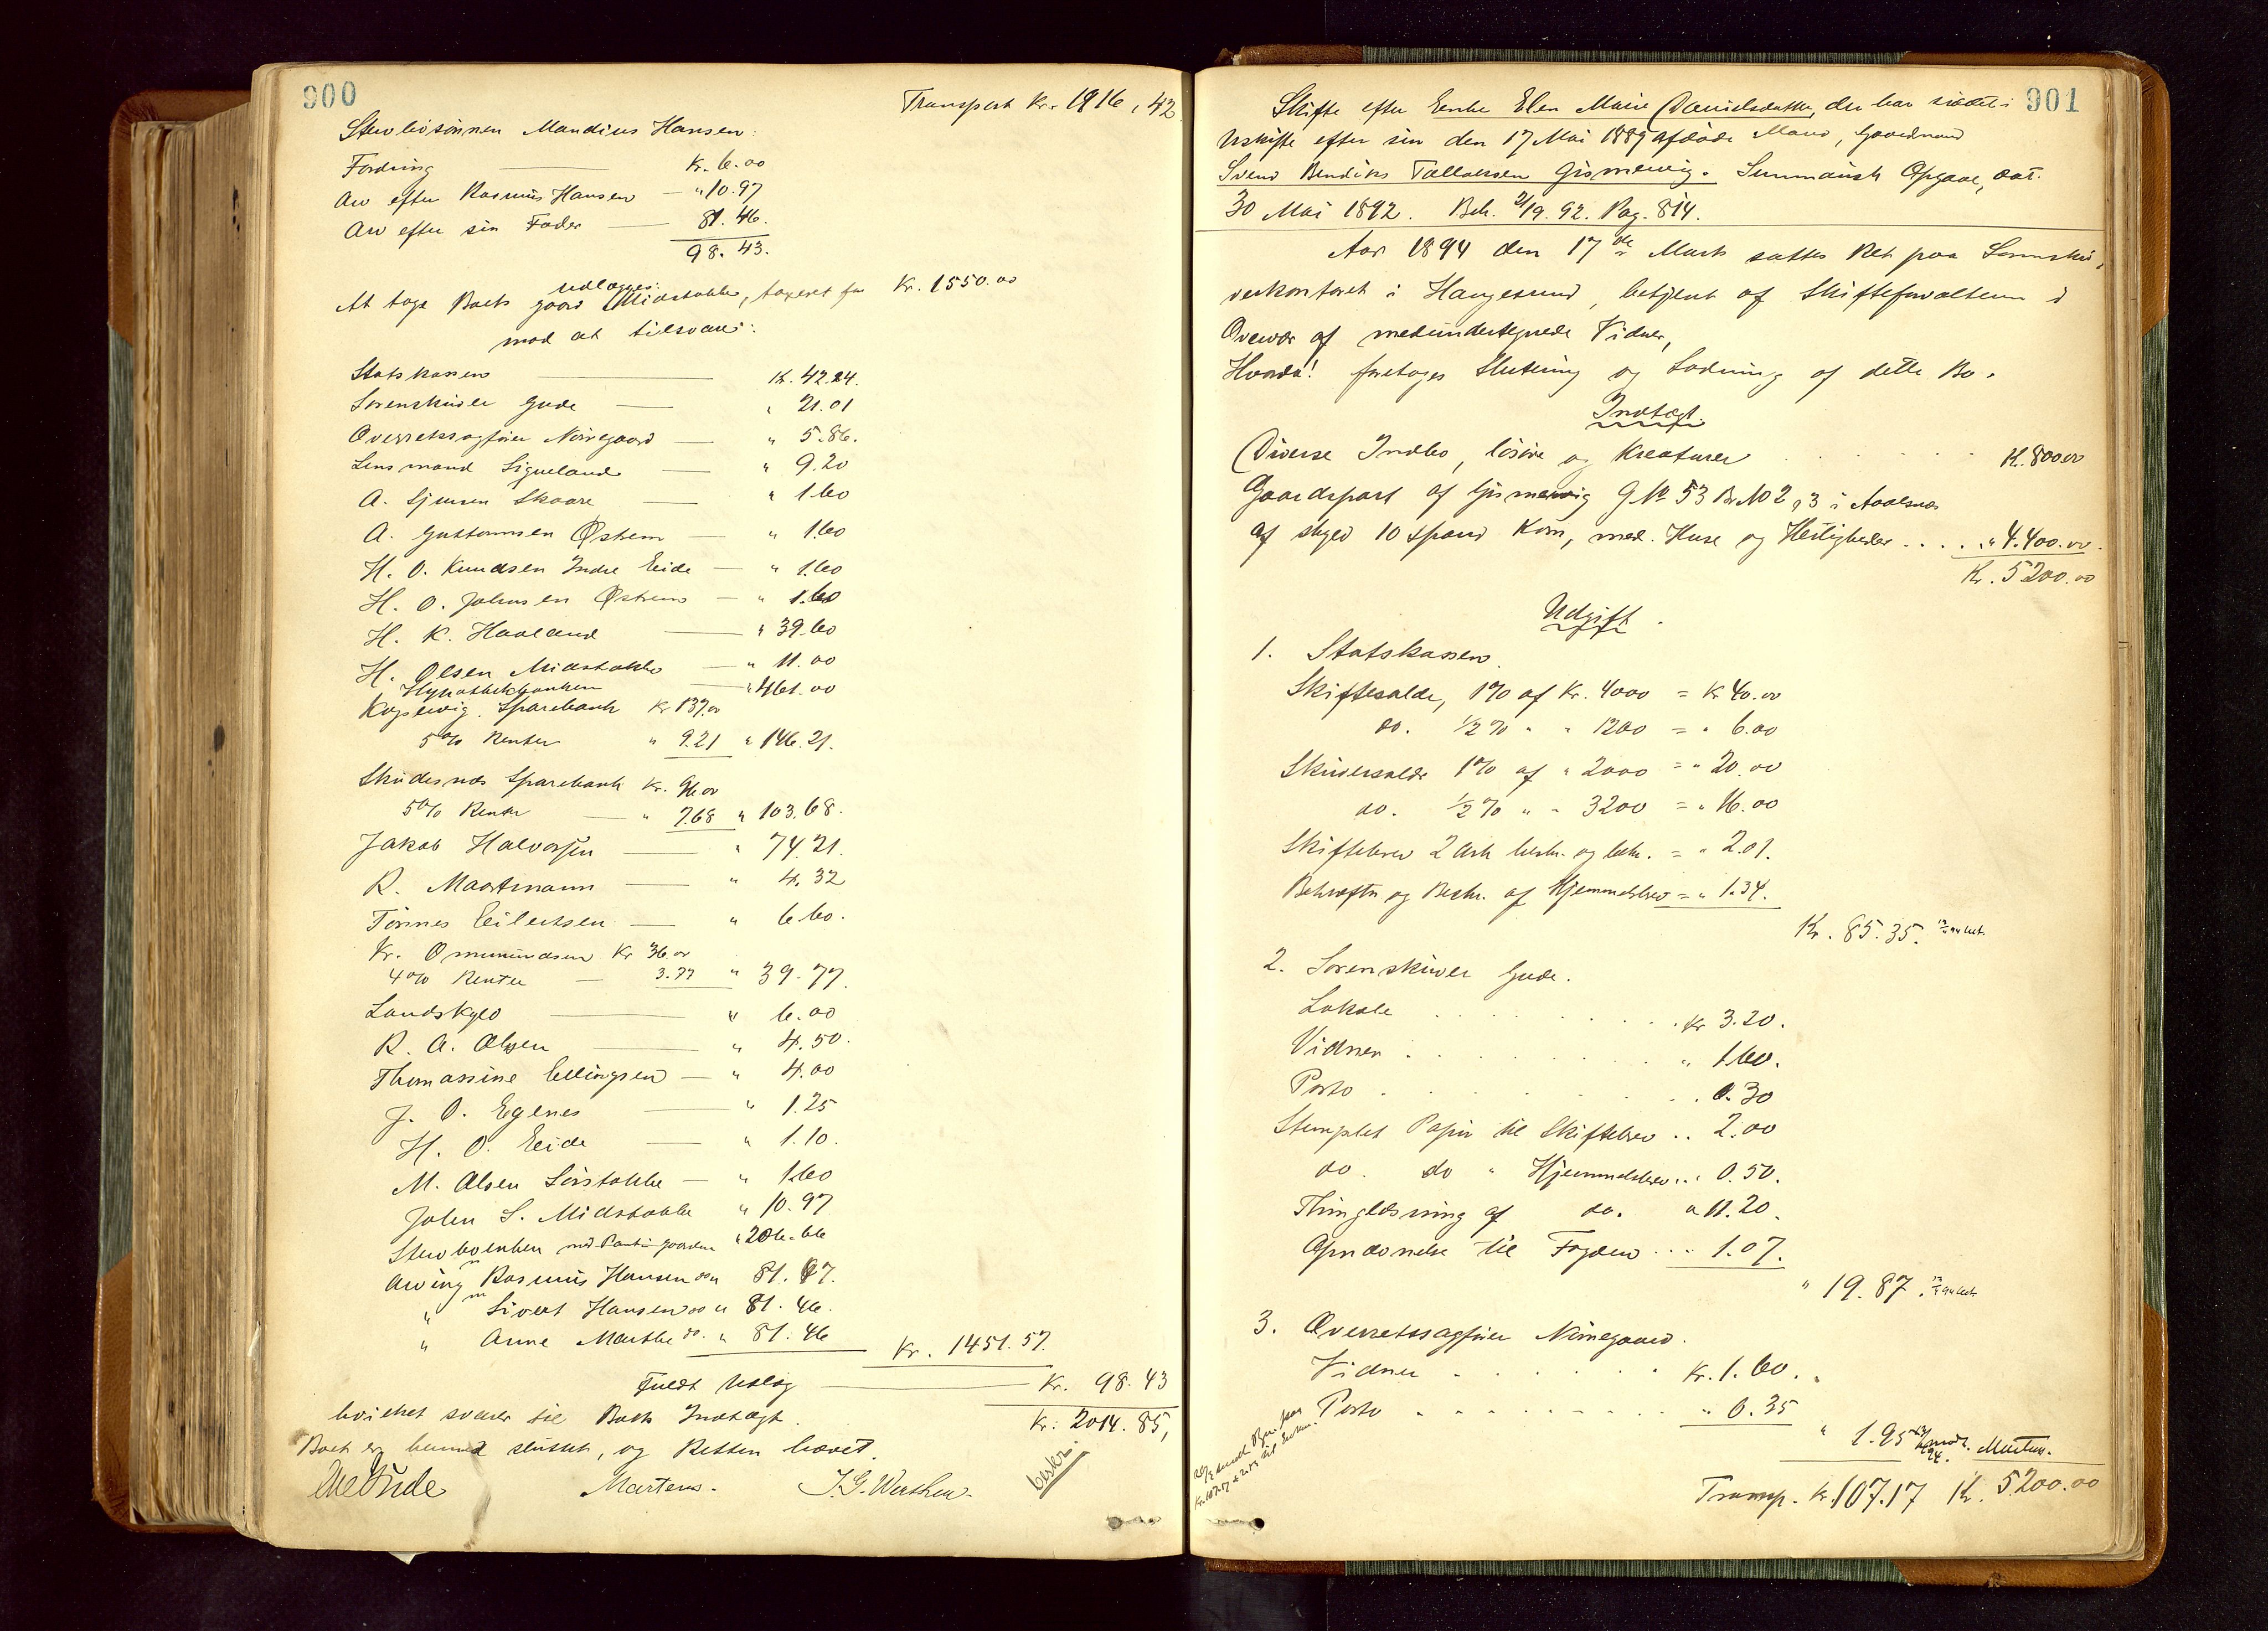 900
Transport Kr. 1916,42
Stervbosønnen Mandius Hansen:
Fordring Kr. 6.00
Arv efter Rasmus Hansen — " 10.97
Arv efter sin Fader — 81.46.
98.43.
udlægges:
At tage Boets gaard Midstokke, taxeret for Kr. 1550.00
mod at tilsvare:
Statskassen K. 42.24.
Sorenskriver Gude — " 21.01
Overretssagfører Nörregaard — " 5.86.
Lensmand Signeland — " 9.20
A. Sjursen Skaare — " 1.60
A. Guttormsen Østrem — " 1.60
H. O. Knudsen Indre Eide — " 1.60
H. O. Johnsen Østrem — " 1.60
H. K. Haaland — " 39.60
H. Olsen Midstokke — " 11.00
Hypothekbanken — " 461.00
Kopervig Sparebank Kr 137.00
5% Renter " 9.21 " 146.21.
Skudesnæs Sparebank Kr. 96.00
5% Renter — " 7.68 " 103.68.
Jakob Halvorsen — " 74.21.
R. Maartmann — " 4.32
Tönnes Eilertsen — " 6.60.
Kr. Ommundsen Kr 36.00
4% Renter — 3.77 " 39.77.
Landskyld — " 6.00
R. A. Olsen — " 4.50.
Thomassine Ellingsen — " 4.00
J. O. Egenes — " 1.25
H. O. Eide — " 1.10.
M. Olsen Sörstokke — " 1.60
John S. Midstokke " 10.97
Stervboenken med Pant i gaarden " 206.66
Arving m Rasmus Hansen do " 81.47.
" m Sivert Hansen do " 81.46.
" Anne Marthe do. " 81.46 Kr. 1451.57.
Fuldt Udlæg — Kr. 98.43
hvilket svarer til Boets Indtægt. Kr. 2014.85,
Boet er hermed sluttet, og Retten hævet.
Gude Martens. J. G. Werthen. beskr.
901
Skifte efter Enke Elen Marie Danielsdatter, der har siddet i
Uskifte efter sin den 17 Mai 1889 afdöde Mand, Gaardmand
Svend Bendiks Tallaksen Gismervig. Summarisk Opgave, dat.
30 Mai 1892. Beh. 2/9.92. Pag. 814.
Aar 1894 den 17de Marts sattes Ret paa Sorenskri-
verkontoret i Haugesund, betjent af Skifteforvalteren i
Overvær af medundertegnede Vidner,
Hvorda! foretoges Slutning og Lodning af dette Bo.
Indtægt.
Diverse Indbo, lösöre og Kreaturer K. 800.00
Gaardspart af Gismervig G No 53 Br. No 2 og 3 i Avaldsnes
af skyld 10 Spand Korn, med. Huse og Herligheder . . . . " 4.400.00.
Kr. 5200.00
Udgift.
1. Statskassen.
Skiftesalær, 1% af Kr. 4000 = Kr 40.00
do. 1/2% " " 1200 = " 6.00
Skriversalær 1% af " 2000 = " 20.00
do. 1/2% " " 3200 = " 16.00
Skiftebrev 2 Ark beskr. og bekr. = " 2.01.
Bekræftn og Beskr. af Hjemmelsbrev = " 1.34.
Kr. 85.35.
2. Sorenskriver Gude.
Lokale . . . Kr 3.20.
Vidner . . . " 1.60.
Porto . . . 0.30
Stemplet Papir til Skiftebrev . . 2.00
do. do " Hjemmelsbrev . . : 0.50.
Thinglæsning af do. " 11.20.
Opnævnelse til Fogden . . . 1.07.
" 19.87.
3. Overretssagfører Nörregaard.
Vidner . . . Kr. 1.60.
Porto . . . " 0.35
" 1.95 Martens.
Transp. Kr. 107.17 K. 5200.00